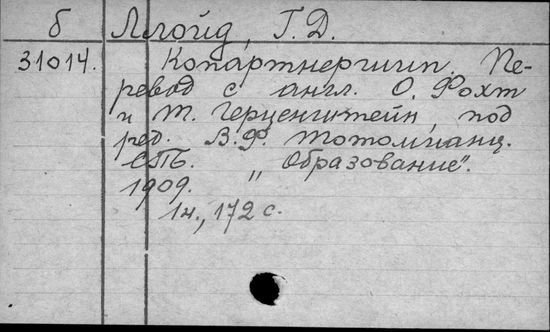 б Ллойд, Г. Д.
31014. Копартнершип. Пе-
ревод с англ. О. Рохт
и Т. Герценштейн, под
ред. В. Ф. Тотомианц.
СПБ. "Образование".
1909.
1 н., 172 с.